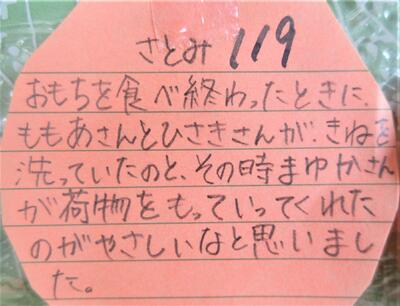 さとみ 119
おもちを食べ終わったときに、
ももあさんとひさきさんが、きねを
洗っていたのと、その時まゆかさん
が荷物をもっていってくれた
のがやさしいなと思いまし
た。